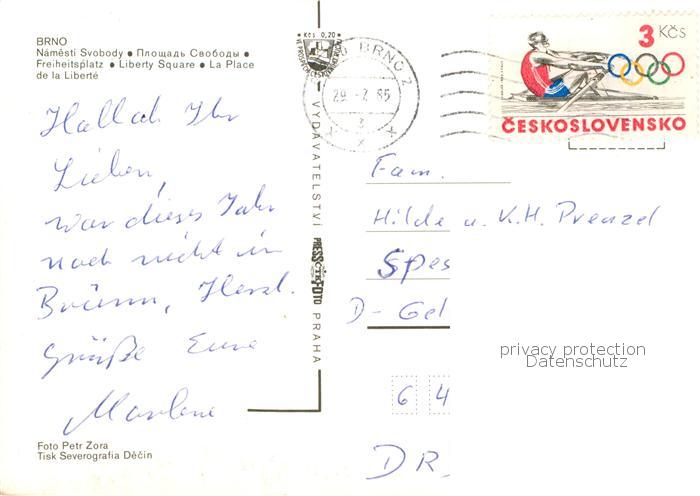 BRNO
Náměstí Svobody ● Площадь Свободы ●
Freiheitsplatz ● Liberty Square ● La Place
de la Liberté
Hallach Ihr
Lieben,
war dieses Jahr
noch nicht in
Brünn, Herzl.
Grüße Eure
Marlene
Foto Petr Zora
Tisk Severografia Děčín
Kčs 0,20
VYDAVATELSTVÍ PRESSFOTO PRAHA
BRNO 2
29.-7.85
3 Kčs
ČESKOSLOVENSKO
Fam.
Hilde u. K.H. Prenzel
Spes
D- Gel
privacy protection
Datenschutz
6 4
DR